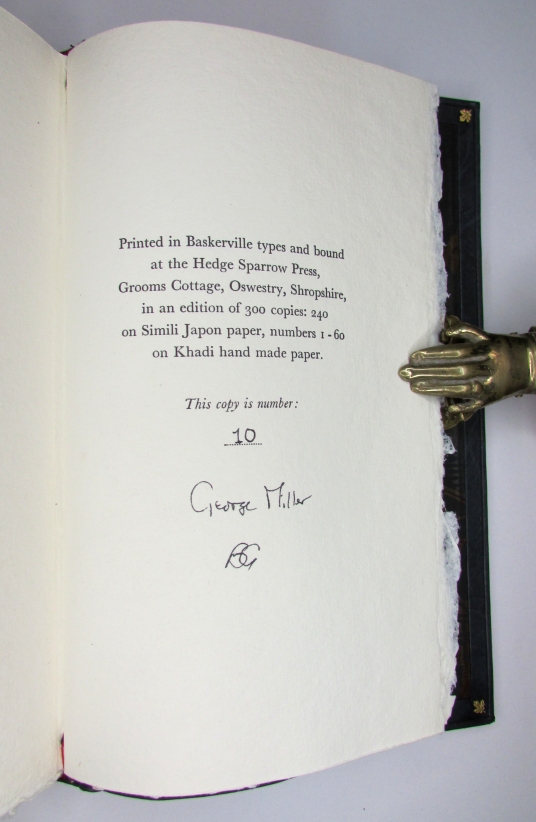 Printed in Baskerville types and bound
at the Hedge Sparrow Press,
Grooms Cottage, Oswestry, Shropshire,
in an edition of 300 copies: 240
on Simili Japon paper, numbers 1 - 60
on Khadi hand made paper.
This copy is number:
10
George Miller